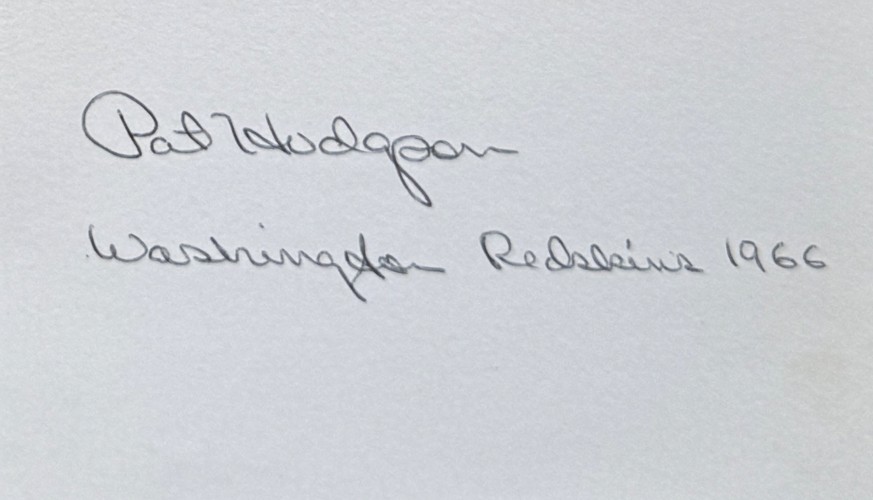 Pat Hodgson
Washington Redskins 1966